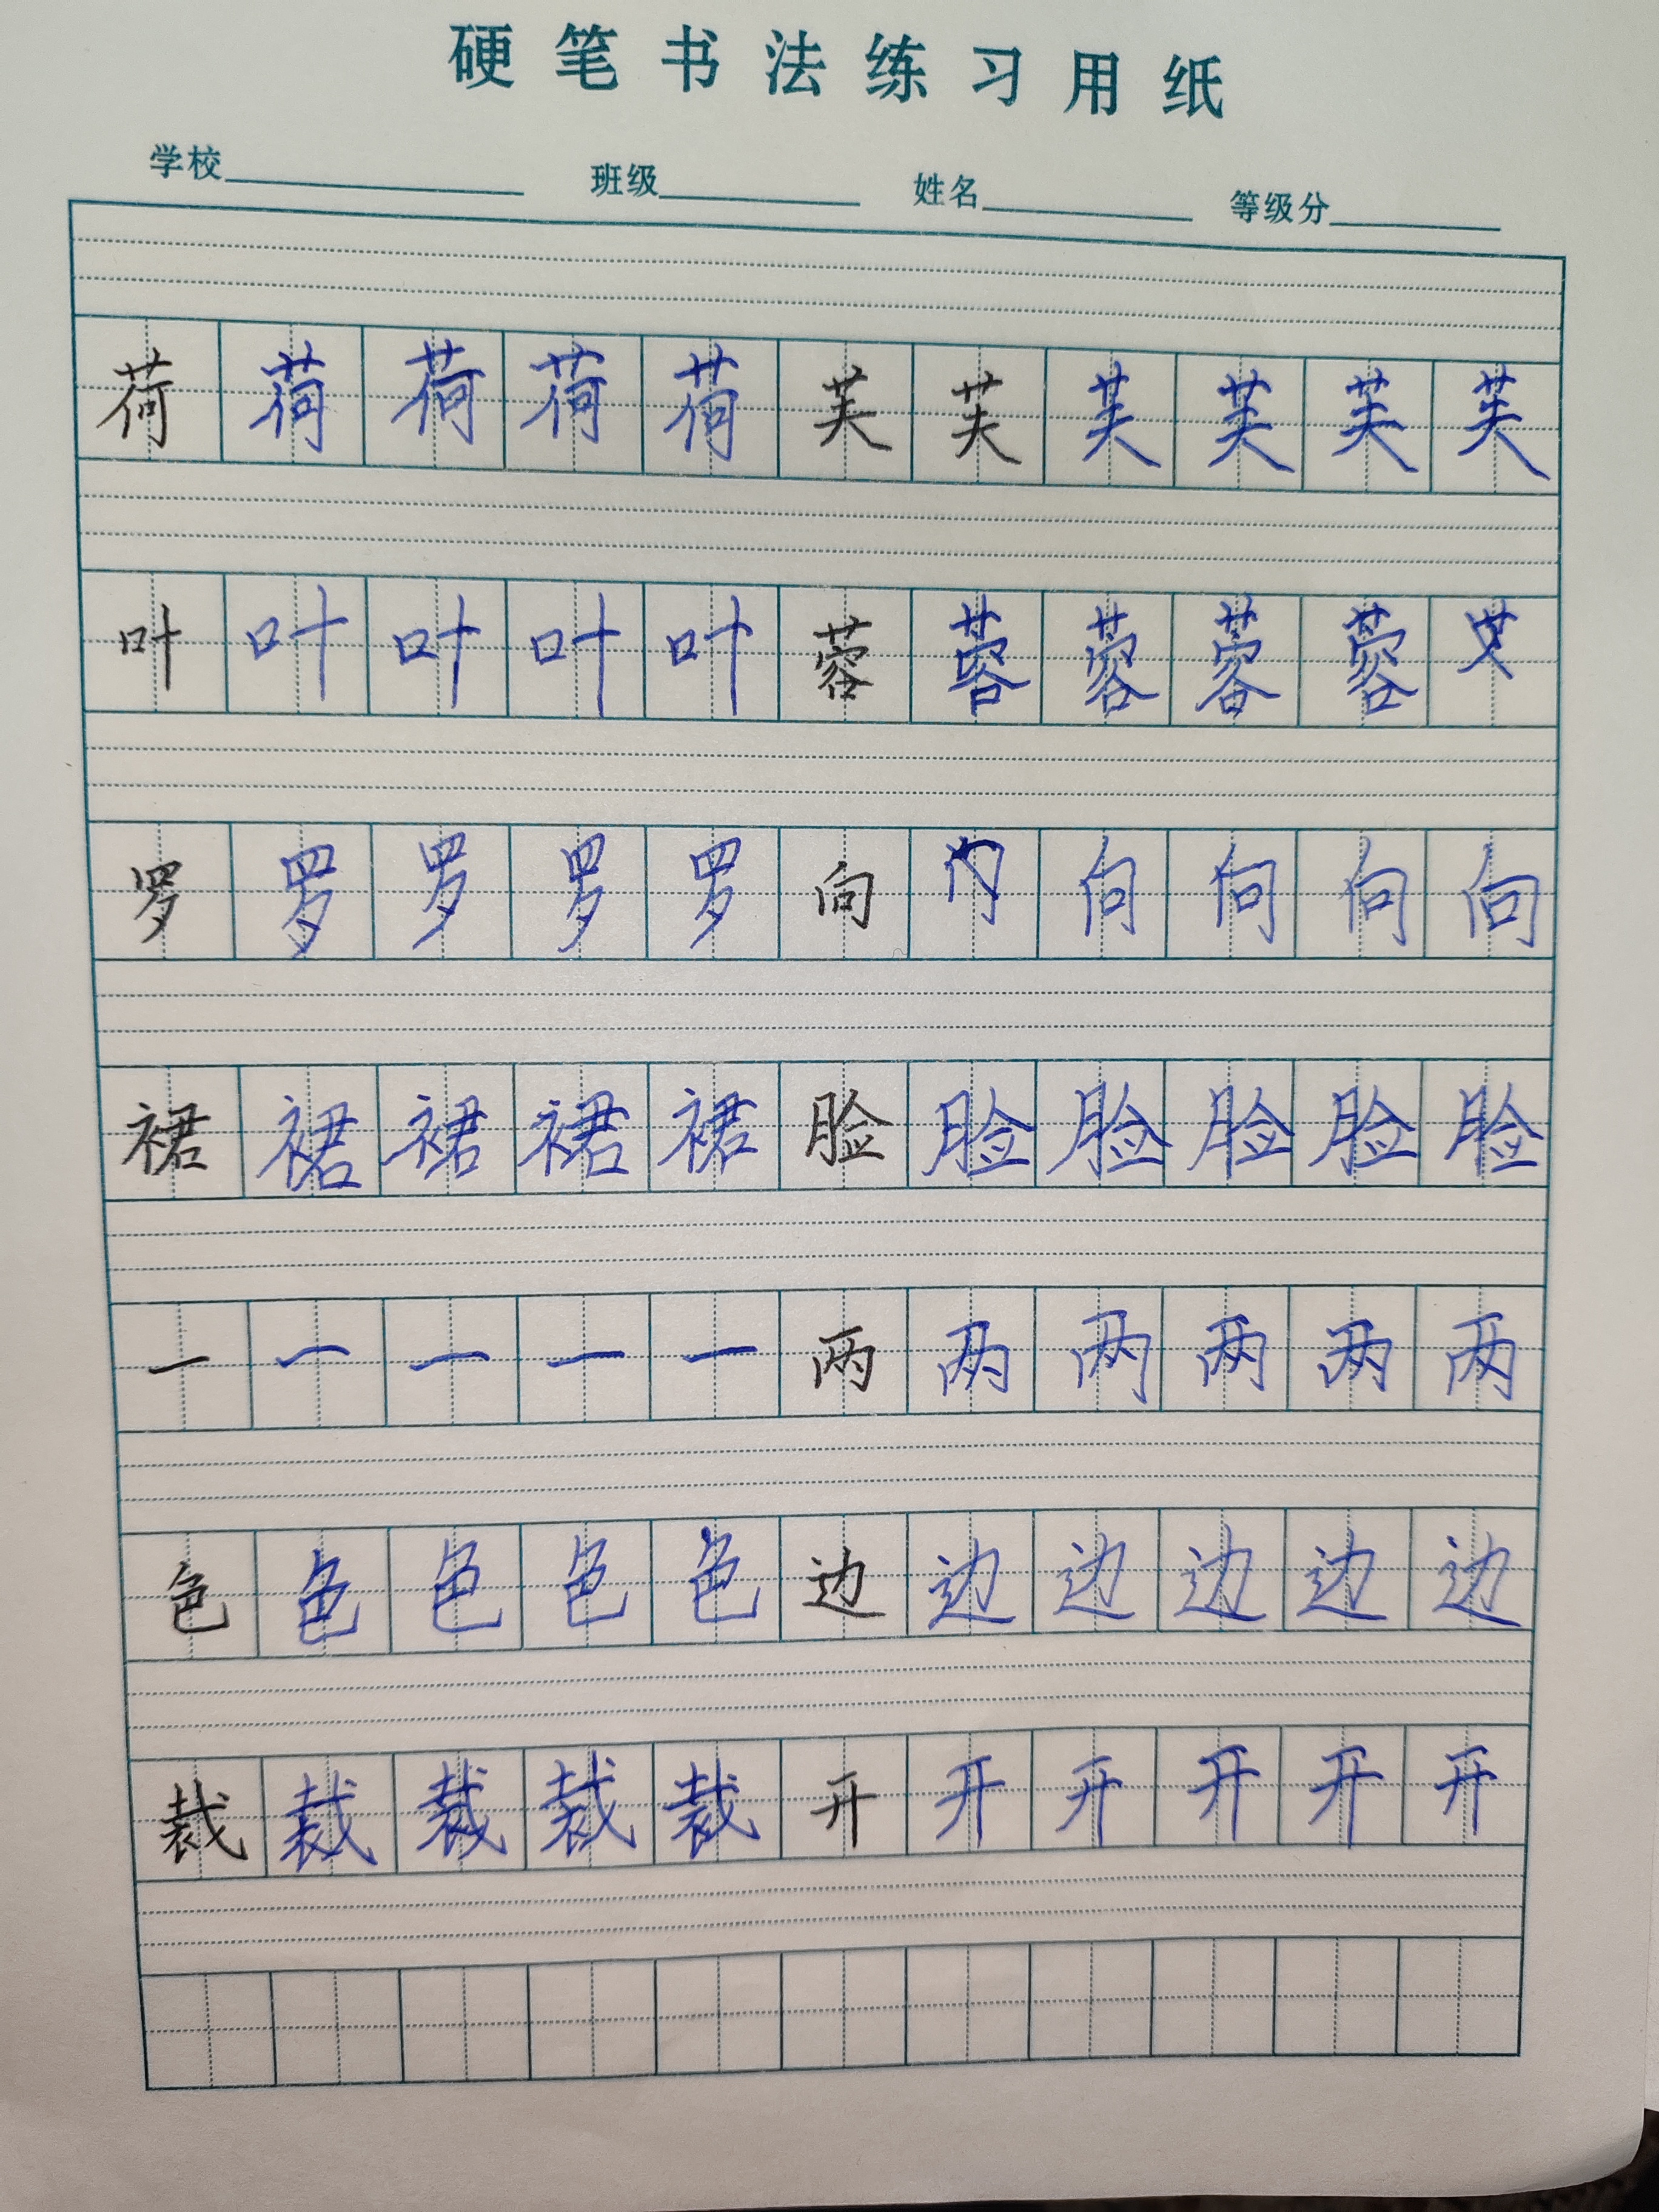 硬笔书法练习用纸
学校 班级 姓名 等级分
荷荷荷荷荷芙芙芙芙芙芙
叶叶叶叶叶蓉蓉蓉蓉蓉
罗罗罗罗罗向向向向向
裙裙裙裙裙脸脸脸脸脸脸
一一一一一两两两两两两
色色色色色边边边边边边
裁裁裁裁裁开开开开开开